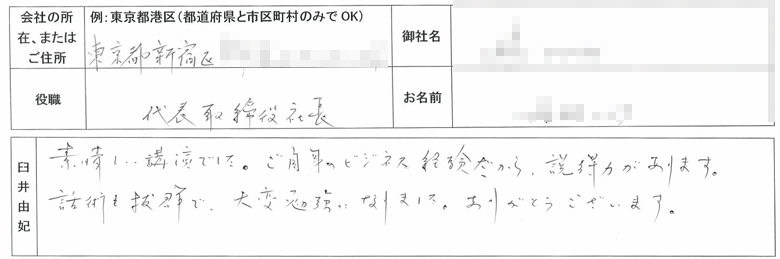 会社の所在、またはご住所
例：東京都港区（都道府県と市区町村のみでOK）
東京都新宿区
御社名
役職
代表取締役社長
お名前
臼井由妃
素晴しい講演でした。ご自身のビジネス経験だから、説得力があります。
話術も抜群で、大変勉強になりました。ありがとうございます。